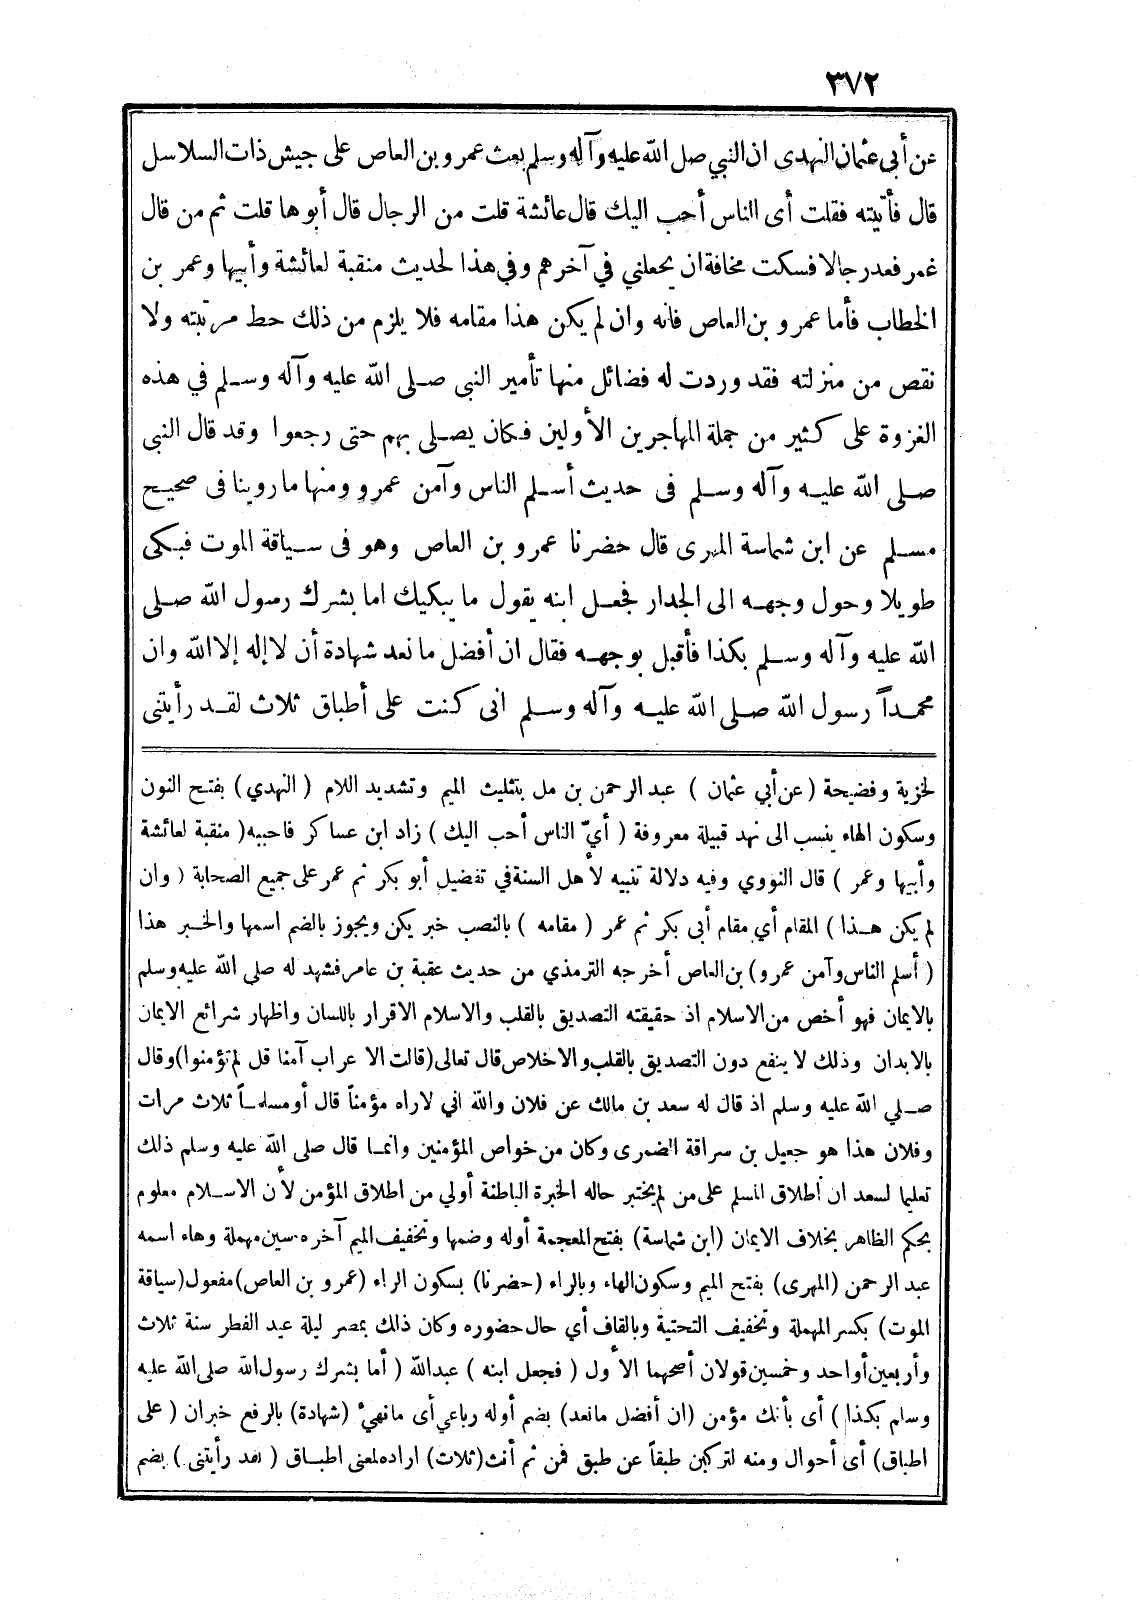 ٣٧٢
عن أبي عثمان النهدى ان النبي صل الله عليه وآله وسلم بعث عمرو بن العاص على جيش ذات السلاسل
قال فأتيته فقلت أى الناس أحب اليك قال عائشة قلت من الرجال قال أبوها قلت ثم من قال
عمر فعد رجالا فسكت مخافة ان يجعلني في آخرهم وفي هذا لحديث منقبة لعائشة وأبيها وعمر بن
الخطاب فأما عمرو بن العاص فانه وان لم يكن هذا مقامه فلا يلزم من ذلك حط مرتبته ولا
نقص من منزلته فقد وردت له فضائل منها تأمير النبى صلى الله عليه وآله وسلم في هذه
الغزوة على كثير من جملة المهاجرين الأولين فكان يصلى بهم حتى رجعوا وقد قال النبى
صلى الله عليه وآله وسلم فى حديث أسلم الناس وآمن عمرو ومنها ما روينا فى صحيح
مسلم عن ابن شماسة المهرى قال حضرنا عمرو بن العاص وهو فى سياقة الموت فبكى
طويلا وحول وجهه الى الجدار فجعل ابنه يقول ما يبكيك اما بشرك رسول الله صلى
الله عليه وآله وسلم بكذا فأقبل بوجهه فقال ان أفضل ما نعد شهادة أن لا إله إلا الله وان
محمداً رسول الله صلى الله عليه وآله وسلم انى كنت على أطباق ثلاث لقد رأيتنى
لخزية وفضيحة (عن أبي عثمان) عبد الرحمن بن مل بتثليث الميم وتشديد اللام (النهدي) بفتح النون
وسكون الهاء ينسب الى نهد قبيلة معروفة (أيّ الناس أحب اليك) زاد ابن عساكر فاحببه (منقبة لعائشة
وأبيها وعمر) قال النووي وفيه دلالة تنبيه لأهل السنة في تفضيل أبو بكر ثم عمر على جميع الصحابة (وان
لم يكن هذا) المقام أي مقام أبى بكر ثم عمر (مقامه) بالنصب خبر يكن ويجوز بالضم اسمها والخبر هذا
(أسلم الناس وآمن عمرو) بن العاص أخرجه الترمذي من حديث عقبة بن عامر فشهد له صلى الله عليه وسلم
بالايمان فهو أخص من الاسلام اذ حقيقته التصديق بالقلب والاسلام الاقرار باللسان واظهار شرائع الايمان
بالابدان وذلك لا ينفع دون التصديق بالقلب والاخلاص قال تعالى (قالت الاعراب آمنا قل لم تؤمنوا) وقال
صلي الله عليه وسلم اذ قال له سعد بن مالك عن فلان والله اني لاراه مؤمناً قال أو مسلماً ثلاث مرات
وفلان هذا هو جعيل بن سراقة الضمرى وكان من خواص المؤمنين وانما قال صلى الله عليه وسلم ذلك
تعليما لسعد ان أطلاق المسلم على من لم يختبر حاله الخبرة الباطنة أولي من اطلاق المؤمن لأن الاسلام معلوم
بحكم الظاهر بخلاف الايمان (ابن شماسة) بفتح المعجمة أوله وضمها وتخفيف الميم آخره سين مهملة وهاء اسمه
عبد الرحمن (المهرى) بفتح الميم وسكون الهاء وبالراء (حضرنا) بسكون الراء (عمرو بن العاص) مفعول (سياقة
الموت) بكسر المهملة وتخفيف التحتية وبالقاف أي حال حضوره وكان ذلك بمصر ليلة عيد الفطر سنة ثلاث
وأربعين أو احد وخمسين قولان أصحهما الأول (فجعل ابنه) عبد الله (أما بشرك رسول الله صلى الله عليه
وسلم بكذا) أى بأنك مؤمن (ان أفضل ما نعد) بضم أوله رباعي أى ما نهيئ (شهادة) بالرفع خبر ان (على
اطباق) أى أحوال ومنه لتركبن طبقاً عن طبق فمن ثم أنث (ثلاث) اراده لمعنى اطباق (لقد رأيتنى) بضم